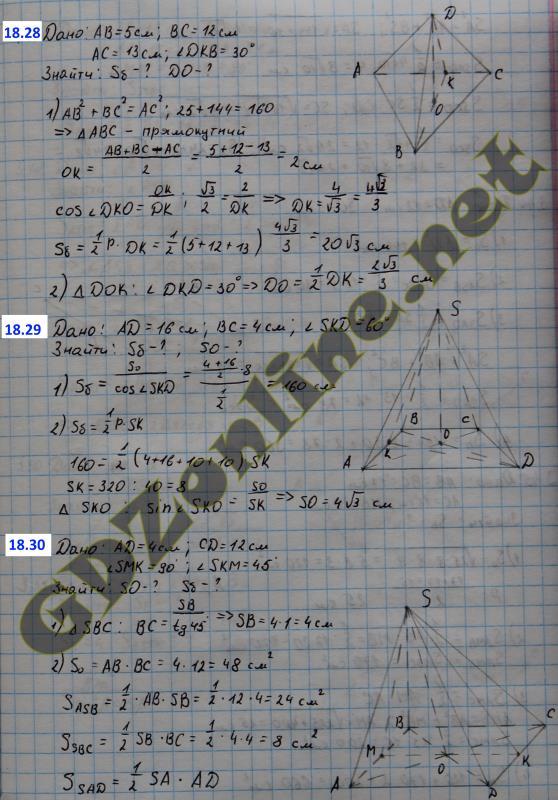 18.28 Дано: AB=5см; BC=12см
AC=13см; ∠DKB=30°
Знайти: Sб-? DO-?
1) AB²+BC²=AC²; 25+144=160
=> ΔABC - прямокутний
OK = (AB+BC-AC)/2 = (5+12-13)/2 = 2см
cos∠DKO = OK/DK; √3/2 = 2/DK => DK = 4/√3 = 4√3/3
Sб = 1/2 P·DK = 1/2 (5+12+13) 4√3/3 = 20√3 см
2) ΔDOK: ∠DKD=30° => DO = 1/2 DK = 2√3/3 см
D
A
K
C
O
B
18.29 Дано: AD=16см; BC=4см; ∠SKD=60°
Знайти: Sб-?, SO-?
1) Sб = So/cos∠SKD = ((4+16)/2·8)/(1/2) = 160 см
2) Sб = 1/2 P·SK
160 = 1/2 (4+16+10+10) SK
SK=320:40=8
Δ SKO sin∠SKO = SO/SK => SO=4√3 см
S
B
C
K
O
A
D
18.30 Дано: AD=4см; CD=12см
∠SMK=90°; ∠SKM=45°
Знайти: SO-? Sб-?
1) ΔSBC: BC = SB/tg45 => SB=4·1=4см
2) So = AB·BC = 4·12=48 см²
S_ASB = 1/2·AB·SB = 1/2·12·4=24см²
S_SBC = 1/2 SB·BC = 1/2·4·4=8 см²
S_SAD = 1/2 SA·AD
S
B
C
M
O
K
A
D
GDZonline.net